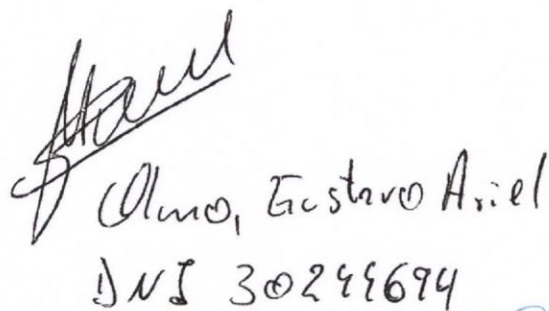 Olmo, Gustavo Ariel
DNI 30244694